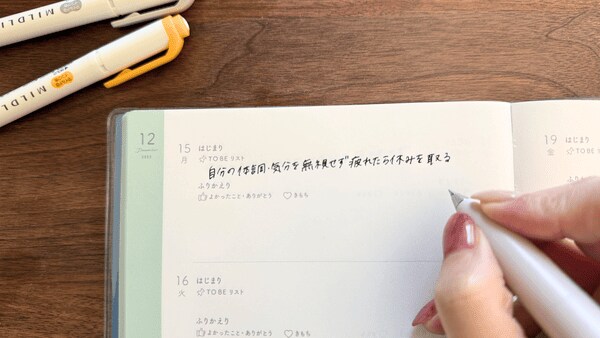 MILDLI
MILDLI
12
15
月
はじまり
TO BE リスト
自分の体調・気分を無視せず疲れたら休みを取る
ふりかえり
よかったこと・ありがとう
きもち
16
火
はじまり
TO BE リスト
ふりかえり
よかったこと・ありがとう
きもち
19
金
はじまり
TO BE リスト